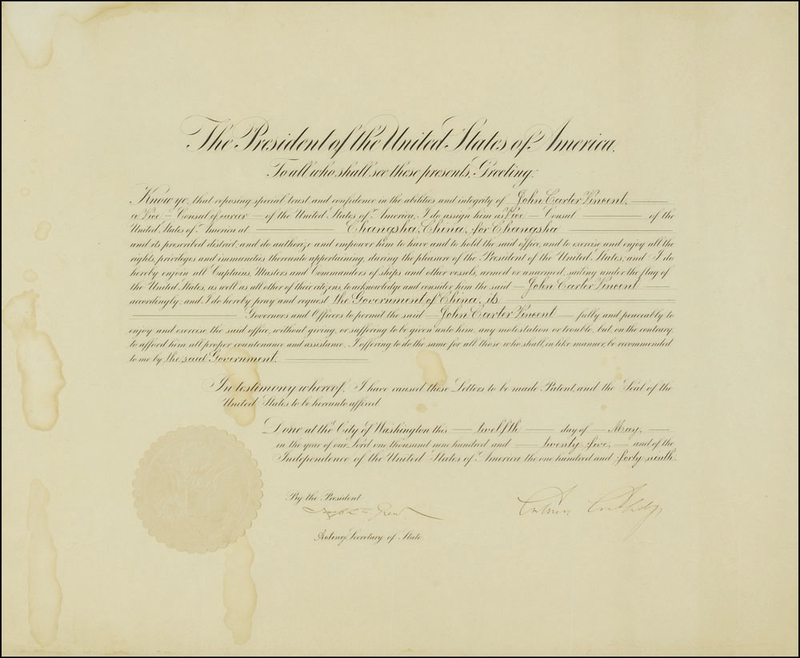 The President of the United States of America.
To all who shall see these presents, Greeting:
Know ye, that reposing special trust and confidence in the abilities and integrity of John Carter Vincent,
a Vice Consul of career of the United States of America, I do assign him as Vice Consul of the
United States of America at Changsha, China, for Changsha
and its prescribed district, and do authorize and empower him to have and to hold the said office, and to exercise and enjoy all the
rights, privileges and immunities thereunto appertaining, during the pleasure of the President of the United States; and I do
hereby enjoin all Captains, Masters and Commanders of ships and other vessels, armed or unarmed, sailing under the flag of
the United States, as well as all other of their citizens, to acknowledge and consider him the said John Carter Vincent
accordingly. and I do hereby pray and request the Government of China, its
Governors and Officers to permit the said John Carter Vincent fully and peaceably to
enjoy and exercise the said office, without giving, or suffering to be given unto him, any molestation or trouble, but on the contrary,
to afford him all proper countenance and assistance; I offering to do the same for all those who shall, in like manner, be recommended
to me by the said Government.
In testimony whereof, I have caused these Letters to be made Patent, and the Seal of the
United States to be hereunto affixed.
Done at the City of Washington this twelfth day of May,
in the year of our Lord one thousand nine hundred and twenty-five, and of the
Independence of the United States of America the one hundred and forty-ninth.
By the President
Calvin Coolidge
Acting Secretary of State.